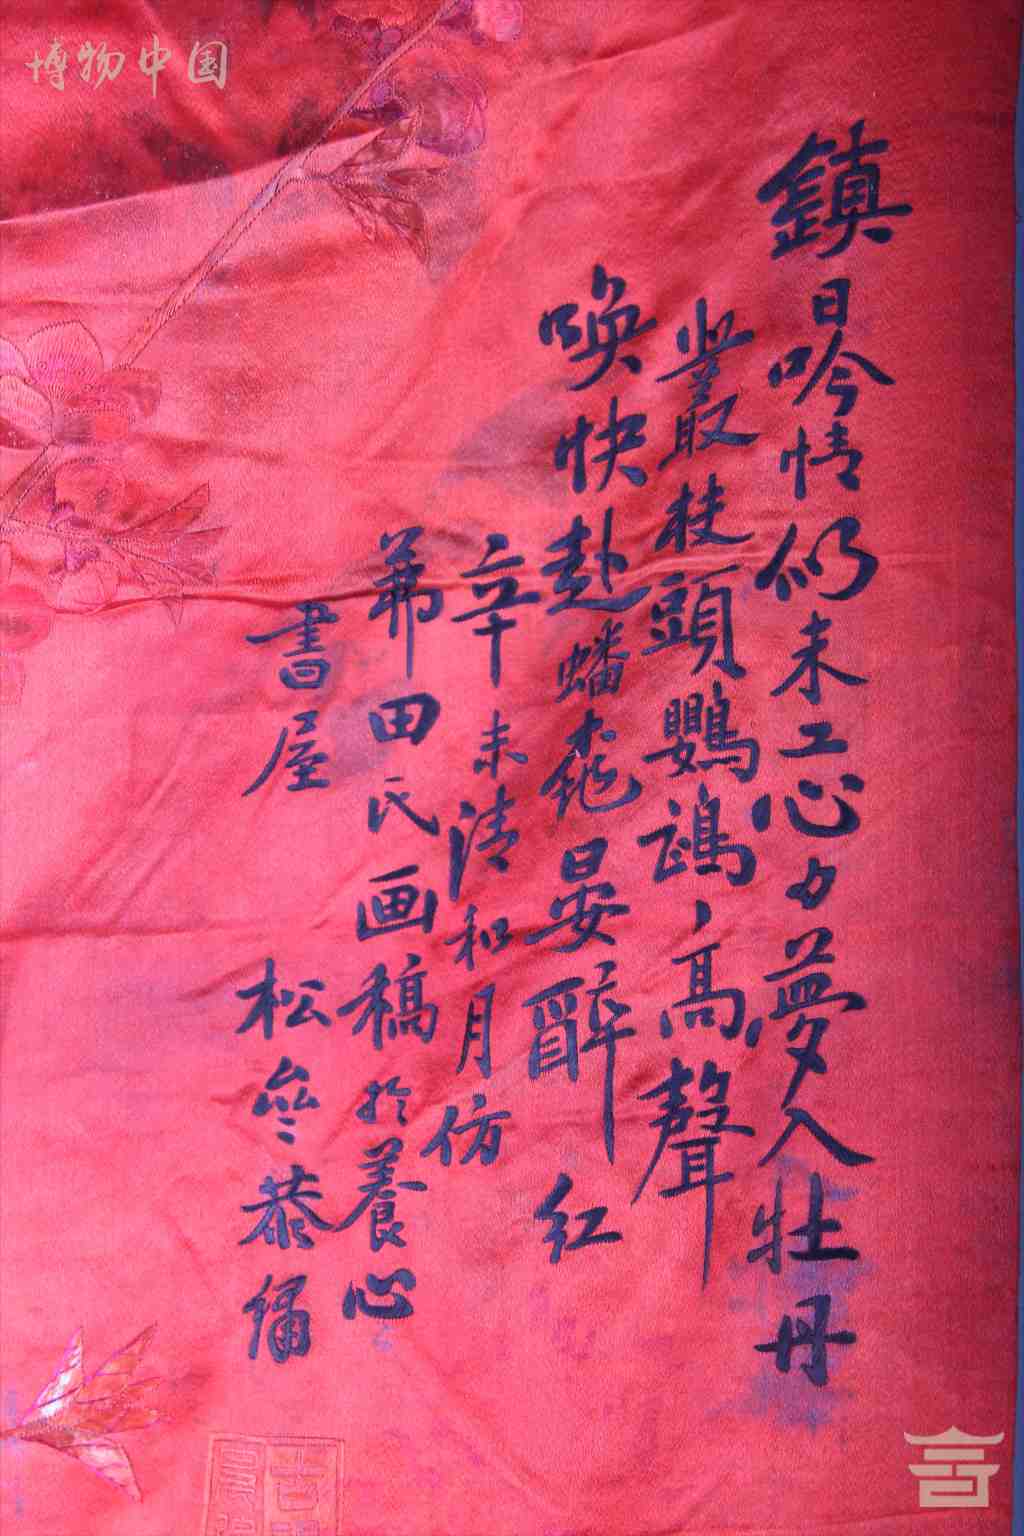 博物中国
鎮日吟情仍未工心力夢入牡丹
叢枝頭鸚鵡高聲
喚快赴蟠桃晏醉红
辛未清和月仿
茀田氏画稿於養心
書屋 松叅恭繡